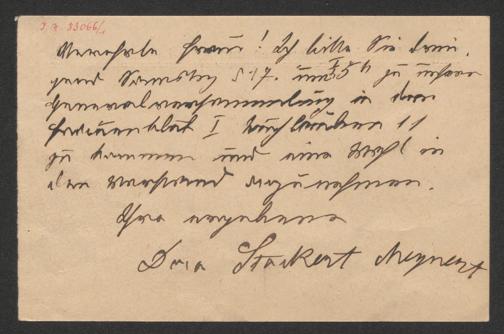 I. N. 33066/1
Verehrte Frau! Ich bitte Sie drin-
gend Samstag 17. um 5 h zu unserer
Generalversammlung in den
Frauenklub I Tuchlauben 11
zu kommen und eine Wahl in
den Vorstand anzunehmen.
Ihre ergebene
Dora Stockert Meynert